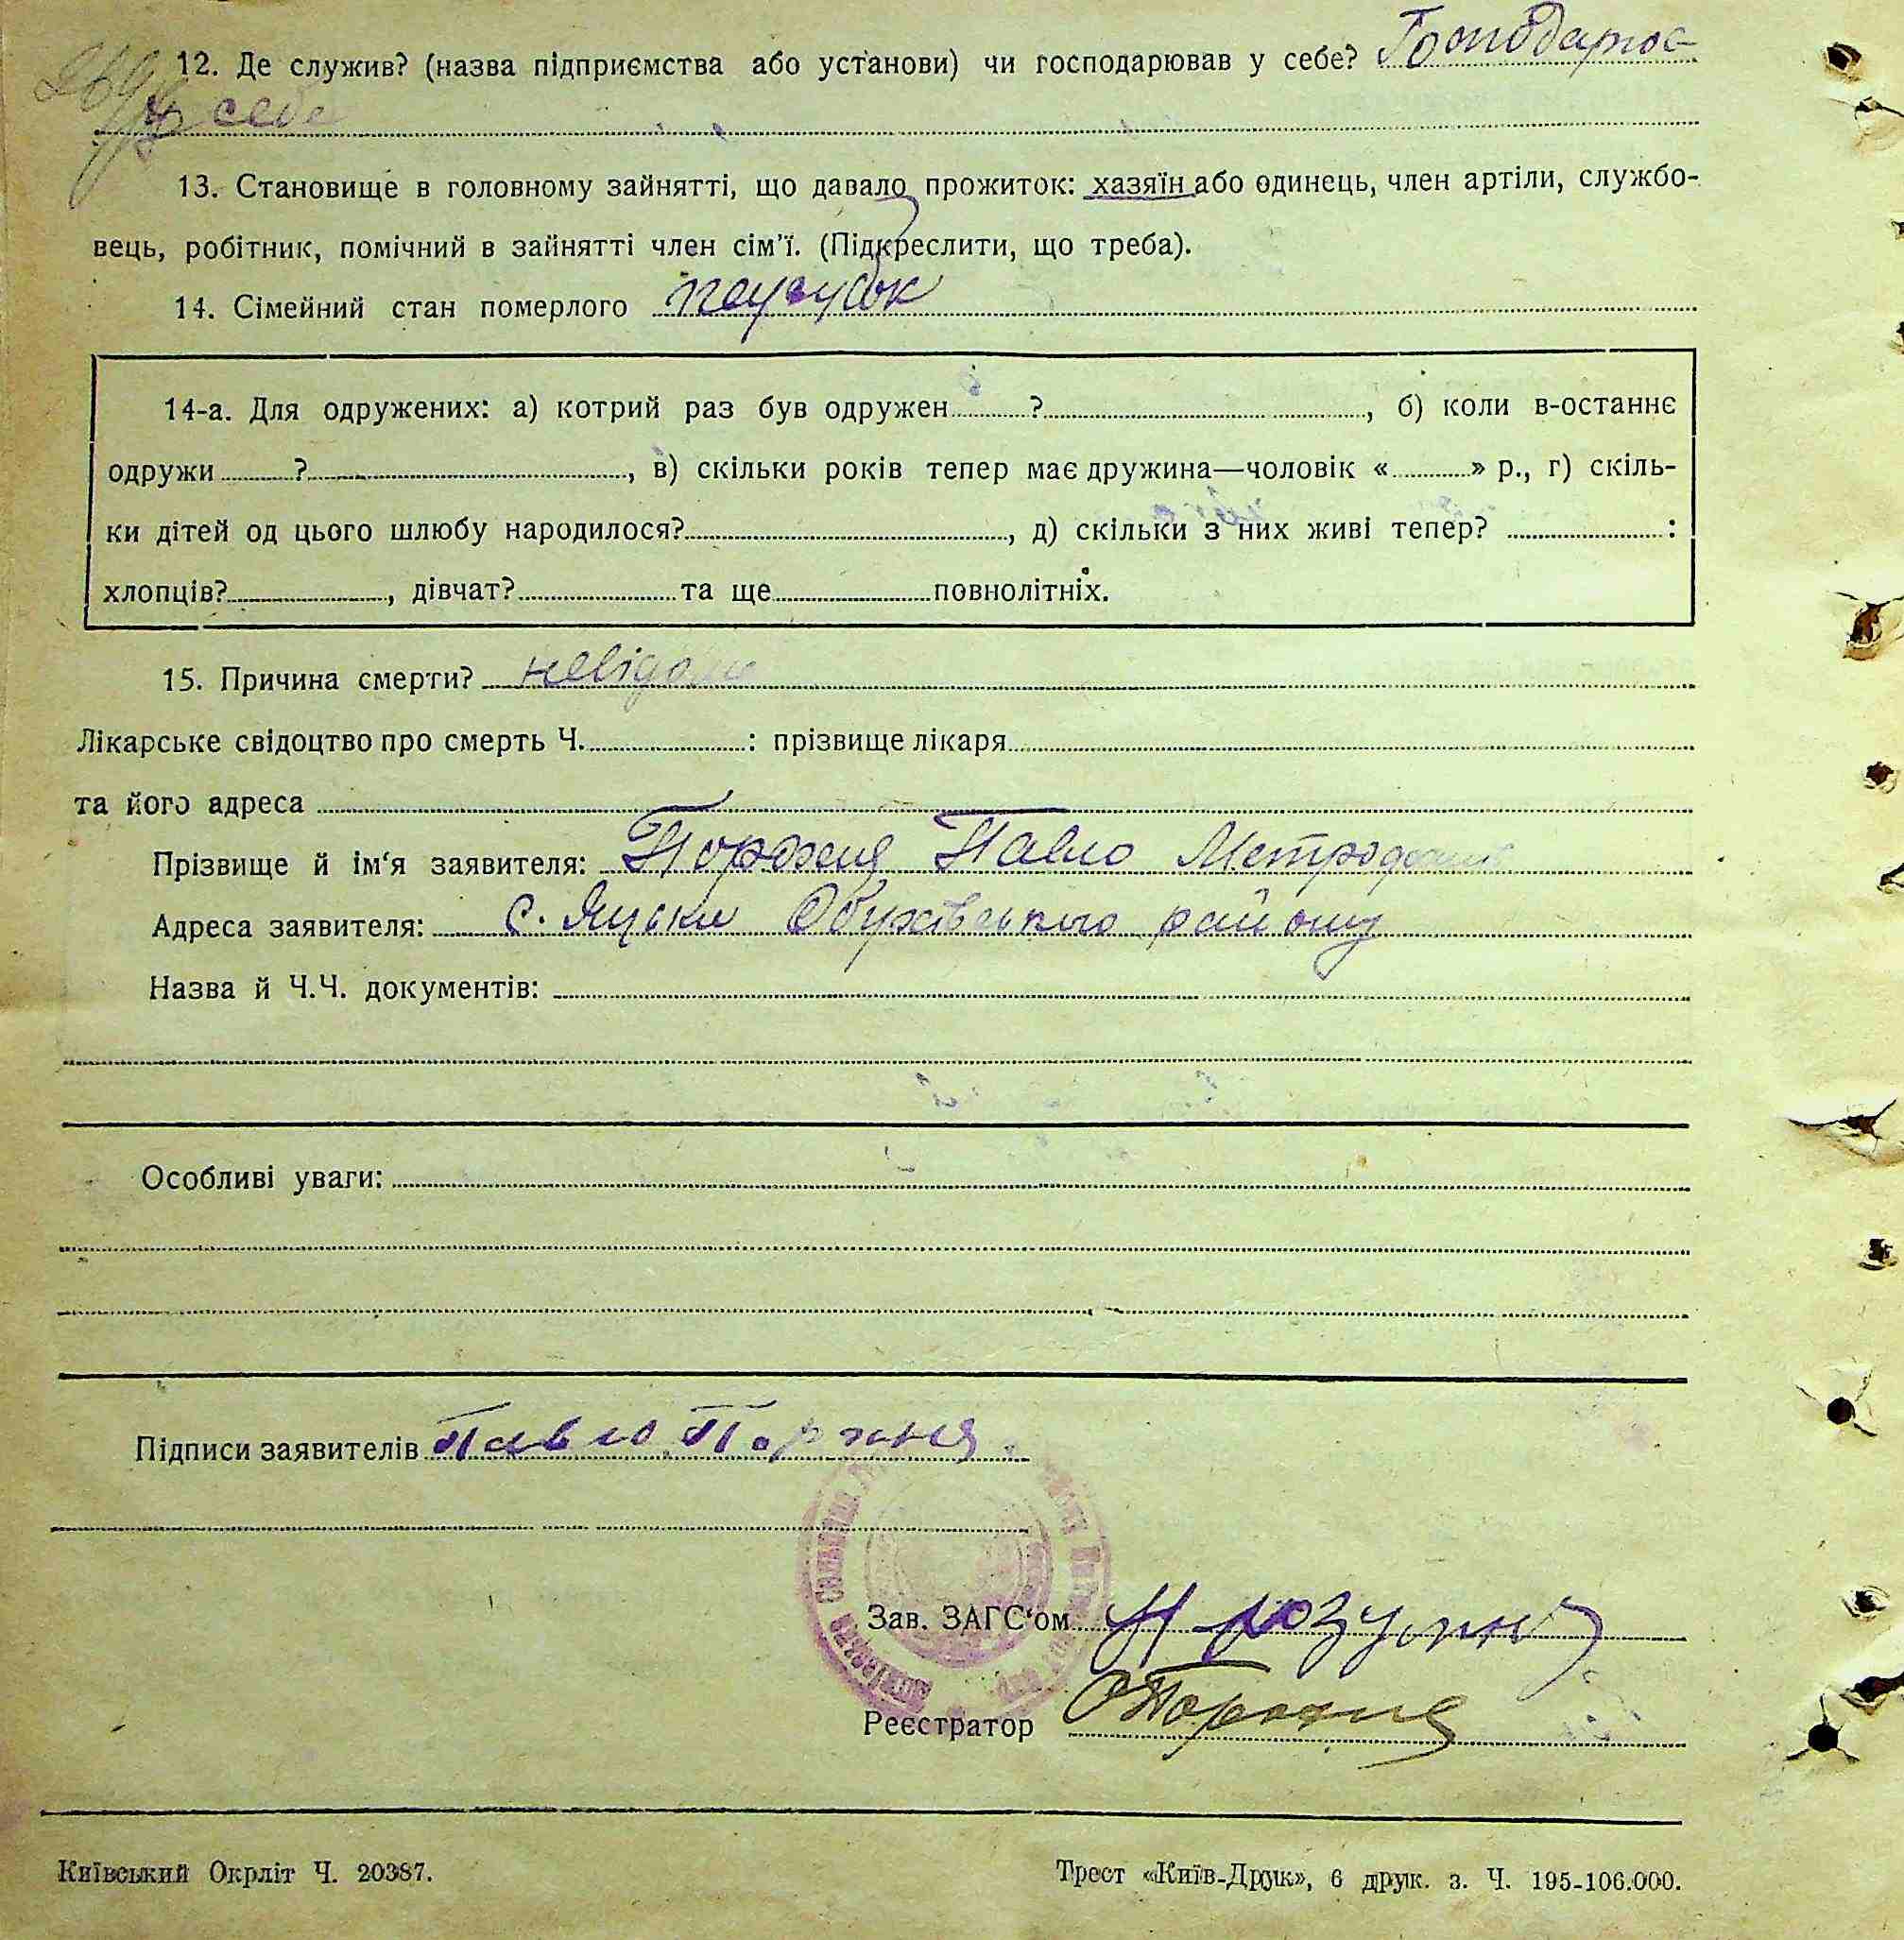 12. Де служив? (назва підприємства або установи) чи господарював у себе?
у себе
13. Становище в головному зайнятті, що давало прожиток: хазяїн або одинець, член артіли, службо-
вець, робітник, помічний в зайнятті член сім'ї. (Підкреслити, що треба).
14. Сімейний стан померлого парубок
14-а. Для одружених: а) котрий раз був одружен ? , б) коли в-останнє
одружи ? , в) скільки років тепер має дружина—чоловік « » р., г) скіль-
ки дітей од цього шлюбу народилося? , д) скільки з них живі тепер? :
хлопців? , дівчат? та ще повнолітніх.
15. Причина смерти? невідома
Лікарське свідоцтво про смерть Ч. : прізвище лікаря
та його адреса
Прізвище й ім'я заявителя: Павло
Адреса заявителя: с. Яцьки Обухівського району
Назва й Ч.Ч. документів:
Особливі уваги:
Підписи заявителів Павло
Зав. ЗАГС'ом
Реєстратор
Київський Окрліт Ч. 20387.
Трест «Київ-Друк», 6 друк. з. Ч. 195-106.000.